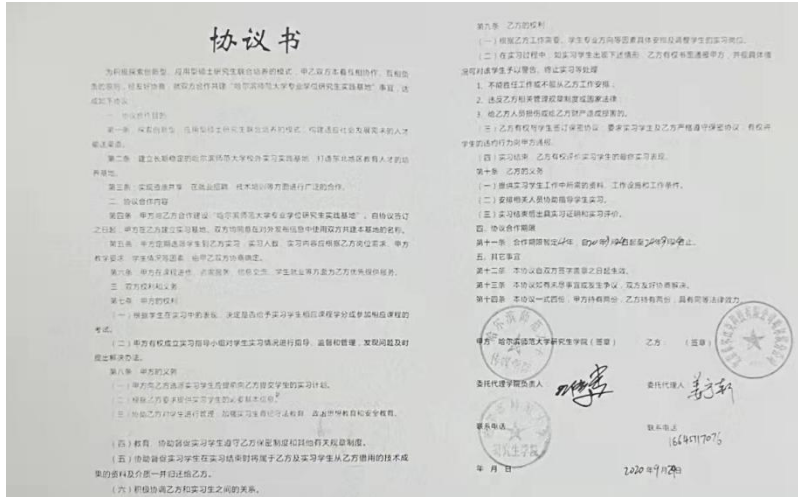 协议书
为积极探索创新型、应用型硕士研究生联合培养的模式，甲乙双方本着互相协作、互相负
责的原则，经友好协商，就双方合作共建“哈尔滨师范大学专业学位研究生实践基地”事宜，达
成如下协议：
一、协议合作目的
第一条 探索创新型、应用型硕士研究生联合培养的模式，构建适应社会发展需求的人才
输送渠道。
第二条 建立长期稳定的哈尔滨师范大学校外实习实践基地，打造东北地区教育人才的培
养基地。
第三条 实现资源共享，在就业招聘、技术培训等方面进行广泛的合作。
二、协议合作内容
第四条 甲方与乙方合作建设“哈尔滨师范大学专业学位研究生实践基地”。自协议签订
之日起，甲方在乙方建立实习基地，双方协同意在对外发布信息中使用双方共建本基地的名称。
第五条 甲方定期选派学生到乙方实习，实习人数、实习内容应根据乙方岗位要求、甲方
教学要求、学生情况等因素，由甲乙双方协商确定。
第六条 甲方在课程进修、咨询服务、信息交流、学生就业等方面为乙方优先提供服务。
三、双方权利和义务
第七条 甲方的权利
（一）根据学生在实习中的表现，决定是否给予实习学生相应课程学分或参加相应课程的
考试。
（二）甲方有权成立实习指导小组对学生实习情况进行指导、监督和管理，发现问题及时
提出解决办法。
第八条 甲方的义务
（一）甲方向乙方选派实习学生在提前向乙方提交学生的实习计划。
（二）根据乙方要求提供实习学生的必要基本信息。
（三）协助乙方对学生进行管理，加强实习生遵纪守法教育、政治思想教育和安全教育。
（四）教育、协助督促实习学生遵守乙方保密制度和其他有关规章制度。
（五）协助督促实习学生在实习结束时将属于乙方及实习学生从乙方借用的技术成
果的资料及介质一并归还给乙方。
（六）积极协调乙方和实习生之间的关系。
第九条 乙方的权利
（一）根据乙方工作需要、学生专业方向等因素具体安排及调整学生的实习岗位。
（二）在实习过程中，如实习学生出现下述情形，乙方有权书面通报甲方，并视具体情
况可对该学生予以警告、终止实习等处理
1、不能胜任工作或不服从乙方工作安排；
2、违反乙方相关管理规章制度或国家法律；
3、给乙方人员损伤或给乙方财产造成损害的。
（三）乙方有权与学生签订保密协议，要求实习学生及乙方严格遵守保密协议，有权将
学生的违约行为向甲方通报。
（四）实习结束，乙方有权评价实习学生的最终实习表现。
第十条 乙方的义务
（一）提供实习学生工作中所需的资料、工作设施和工作条件。
（二）安排相关人员协助指导学生实习。
（三）实习结束后出具实习证明和实习评价。
四、协议合作期限
第十一条 合作期限暂定 年，自
五、其它事宜
第十二条 本协议自双方签字盖章之日起生效。
第十三条 本协议如有未尽事宜或发生争议，双方友好协商解决。
第十四条 本协议一式四份，甲方持有两份，乙方持有两份，具有同等法律效力。
甲方：哈尔滨师范大学研究生学院（签章） 乙方：（签章）
委托代理学院负责人 委托代理人
联系电话 联系电话
年 月 日 2020年9月 日